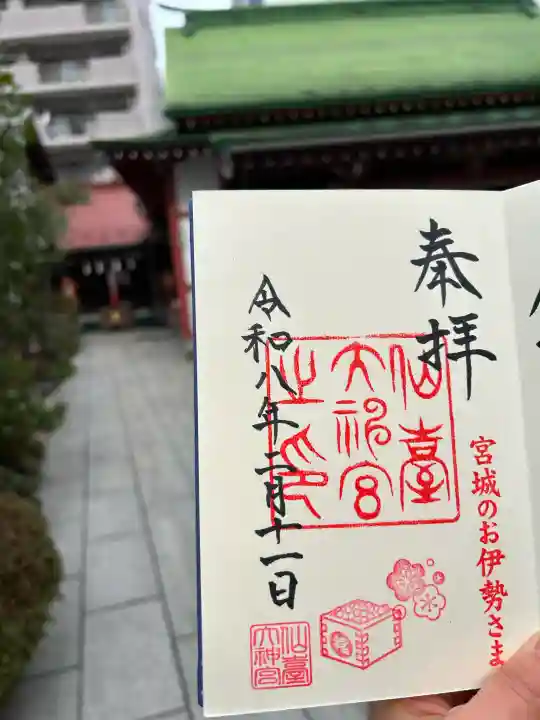 奉拝
宮城のお伊勢さま
仙臺
大神宮
之印
令和八年二月十一日
仙臺
大神宮